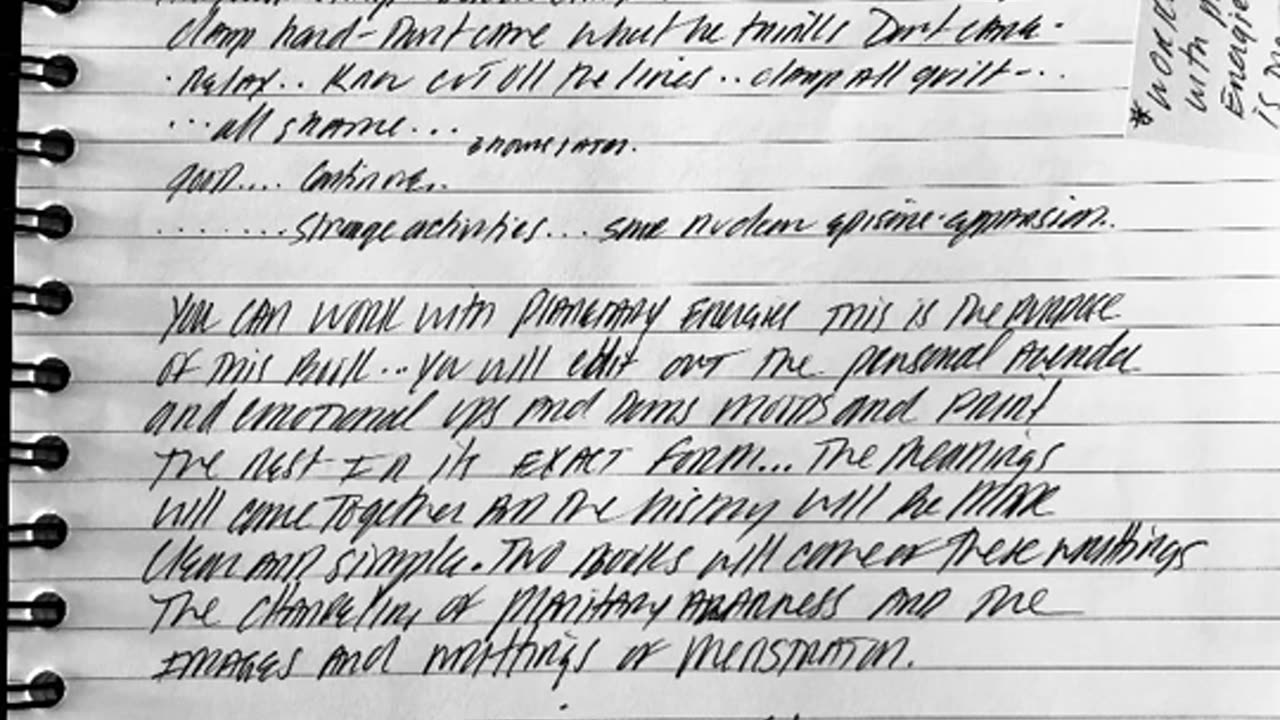 clamp hard - Dont care what he thinks Dont care -
· Relax.. Know cut off the lines .. clamp All guilt - ..
... all shame...
good.... Continue..
........ strange activities... some nuclear
You can work with Planetary Energies This is the purpose
of this Book... you will edit out the personal Agenda
and emotional ups and Downs moods and print
The rest In its EXACT Form... The meanings
will come Together and the history will be made
Clear and simple. Two Books will come of These writtings
The Channeling of Planitary Awareness and the
IMAGES And writtings of Menstration.
* WORK
with
Energie
is